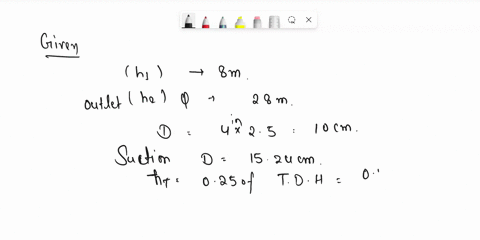 Given
(h₁) → 8m.
outlet (h₂) → 28m.
D = 4 in × 2.5 = 10cm.
Suction D = 15.24cm.
h_T = 0.25 of T.D.H = 0.